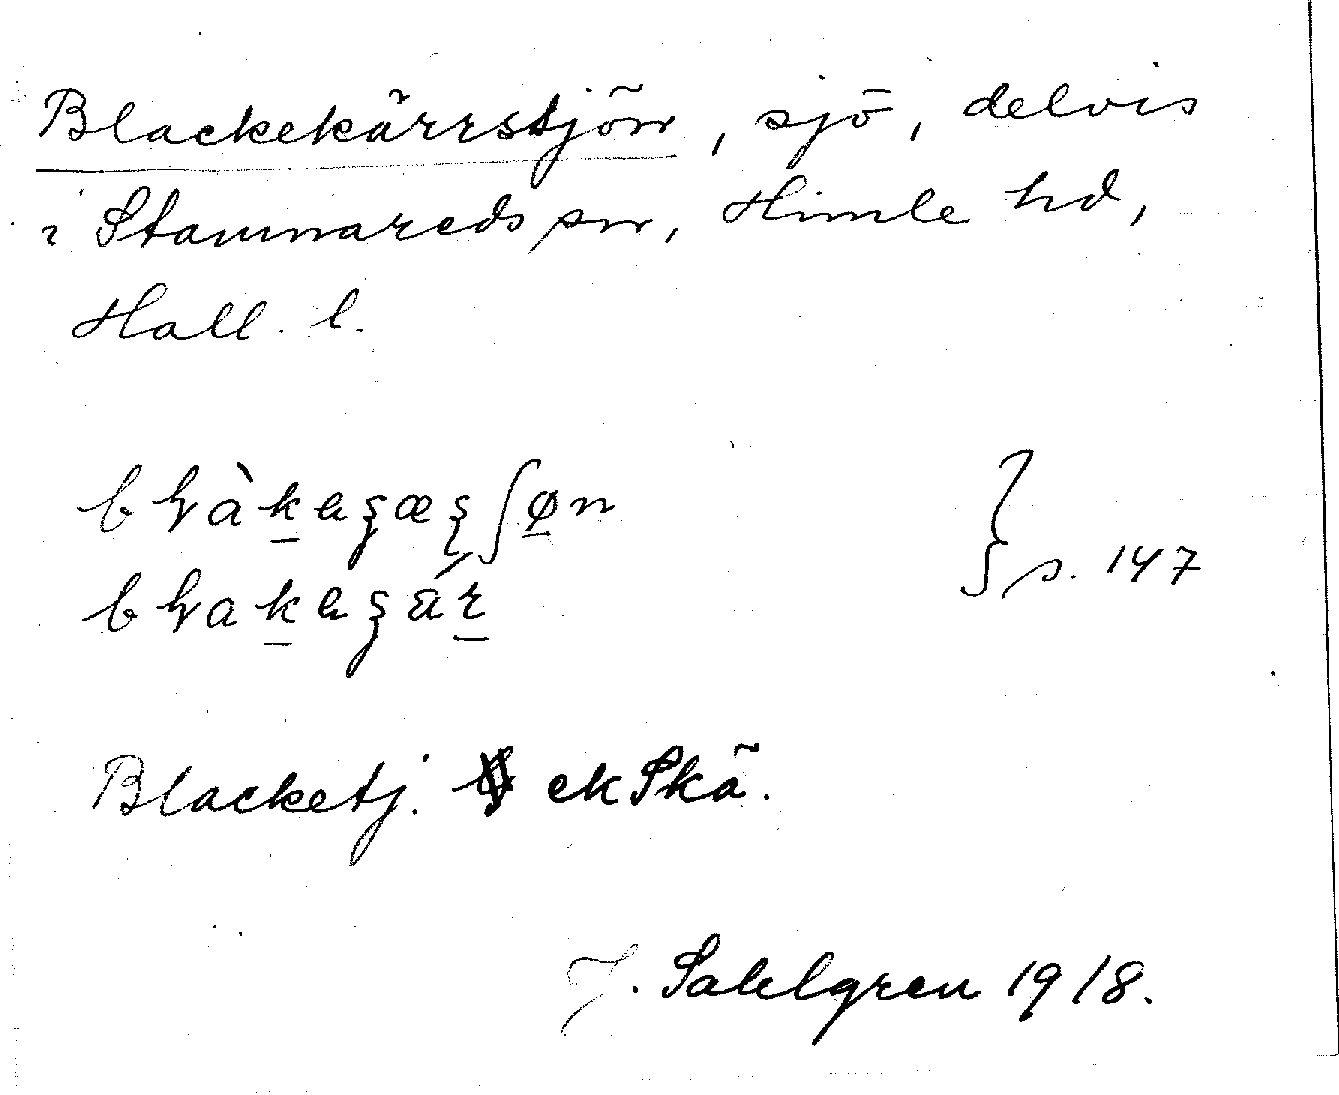 Blackekärrstjörn, sjö, delvis
i Stamnareds sn, Himle hd,
Hall. l.
s. 147
Blacketj. ekSkä.
J. Sahlgren 1918.